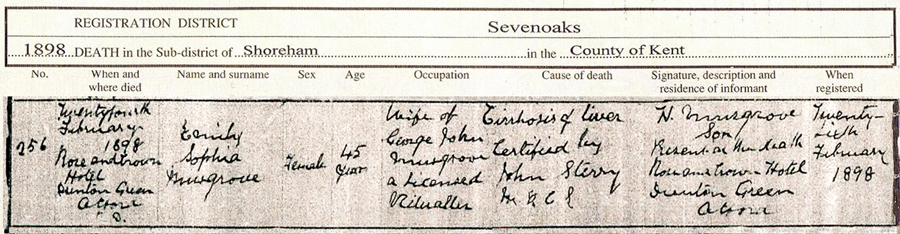 REGISTRATION DISTRICT Sevenoaks
1898 DEATH in the Sub-district of Shoreham in the County of Kent
No. When and where died Name and surname Sex Age Occupation Cause of death Signature, description and residence of informant When registered
256
Twenty fourth
February
1898
Rose and Crown
Hotel
Dunton Green
Otford
Emily
Sophia
Musgrove
Female
45
Years
Wife of
George John
Musgrove
a Licensed
Victualler
Cirrhosis of liver
Certified by
John Sterry
M R C S
H. Musgrove
Son
Present at the death
Rose and Crown Hotel
Dunton Green
Otford
Twenty-
February
1898